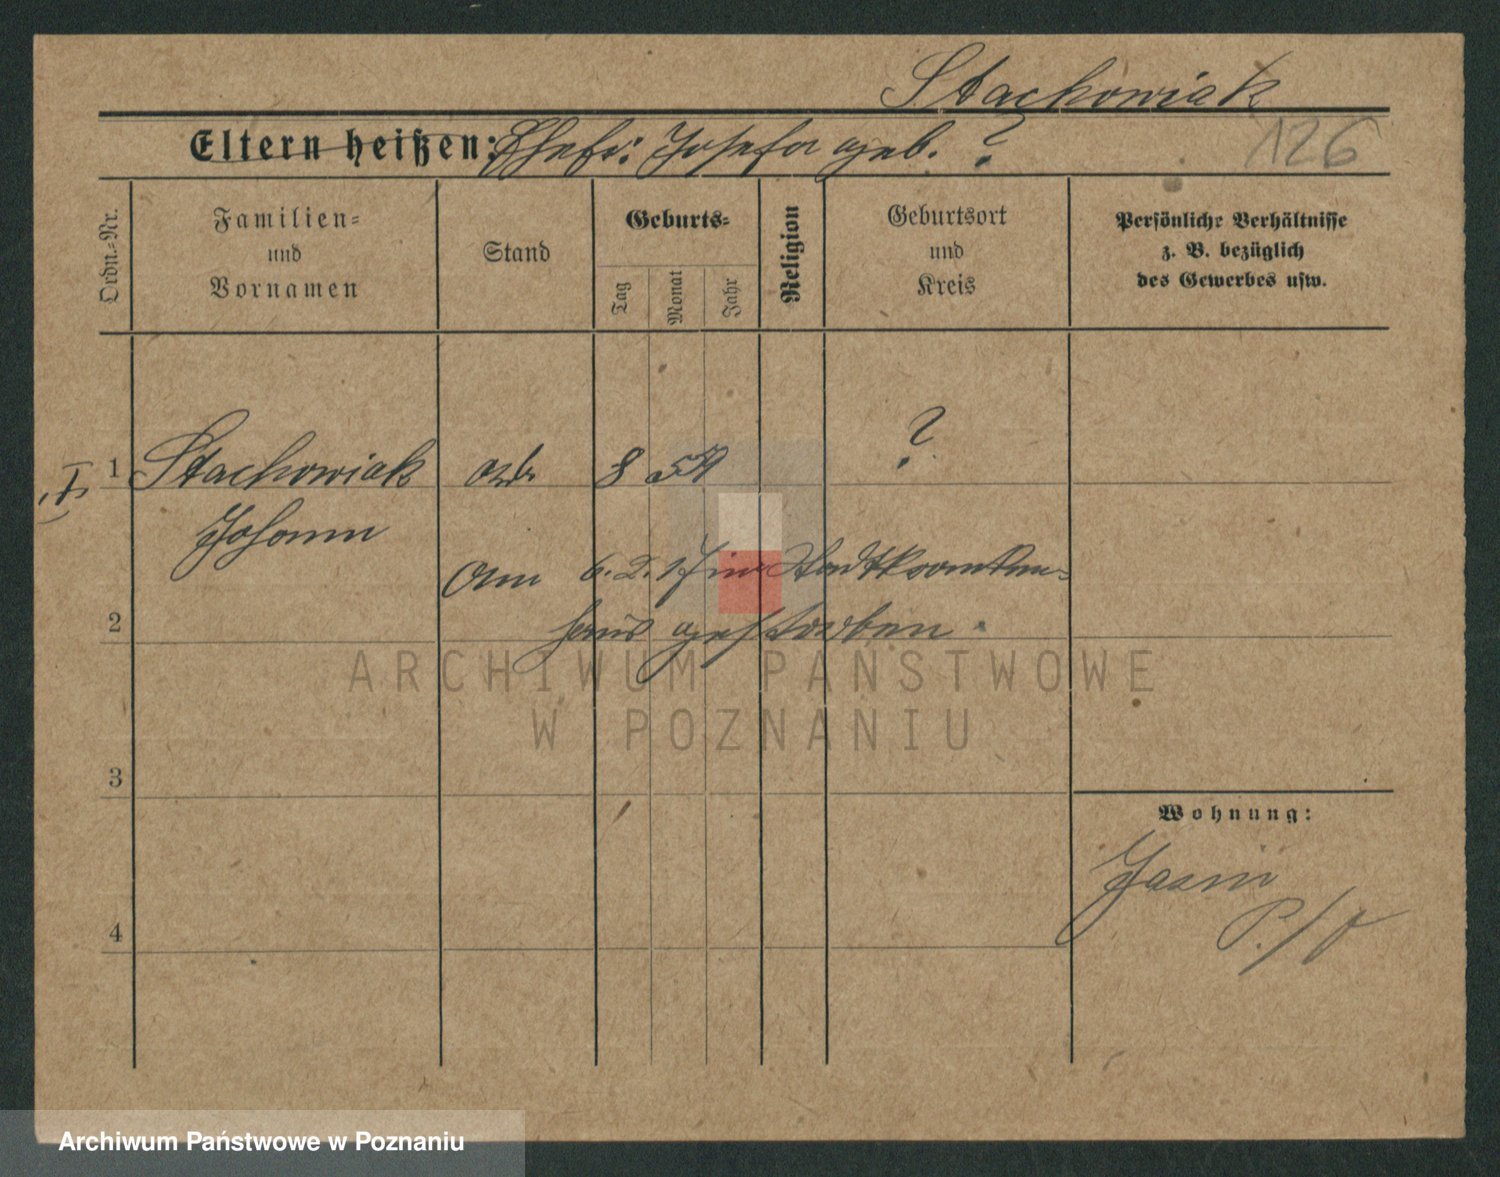 Stachowiak
Eltern heißen: Ehefr: Josefa geb. ?
126
Ordn.=Nr.
Familien=
und
Vornamen
Stand
Geburts=
Tag
Monat
Jahr
Religion
Geburtsort
und
Kreis
Persönliche Verhältnisse
z. B. bezüglich
des Gewerbes usw.
1 Stachowiak Arb. 8 54 ?
Johann
Am 6. 2. 17 im Stadtkranken=
2
haus gestorben.
ARCHIWUM PAŃSTWOWE
W POZNANIU
3
Wohnung:
4
Archiwum Państwowe w Poznaniu